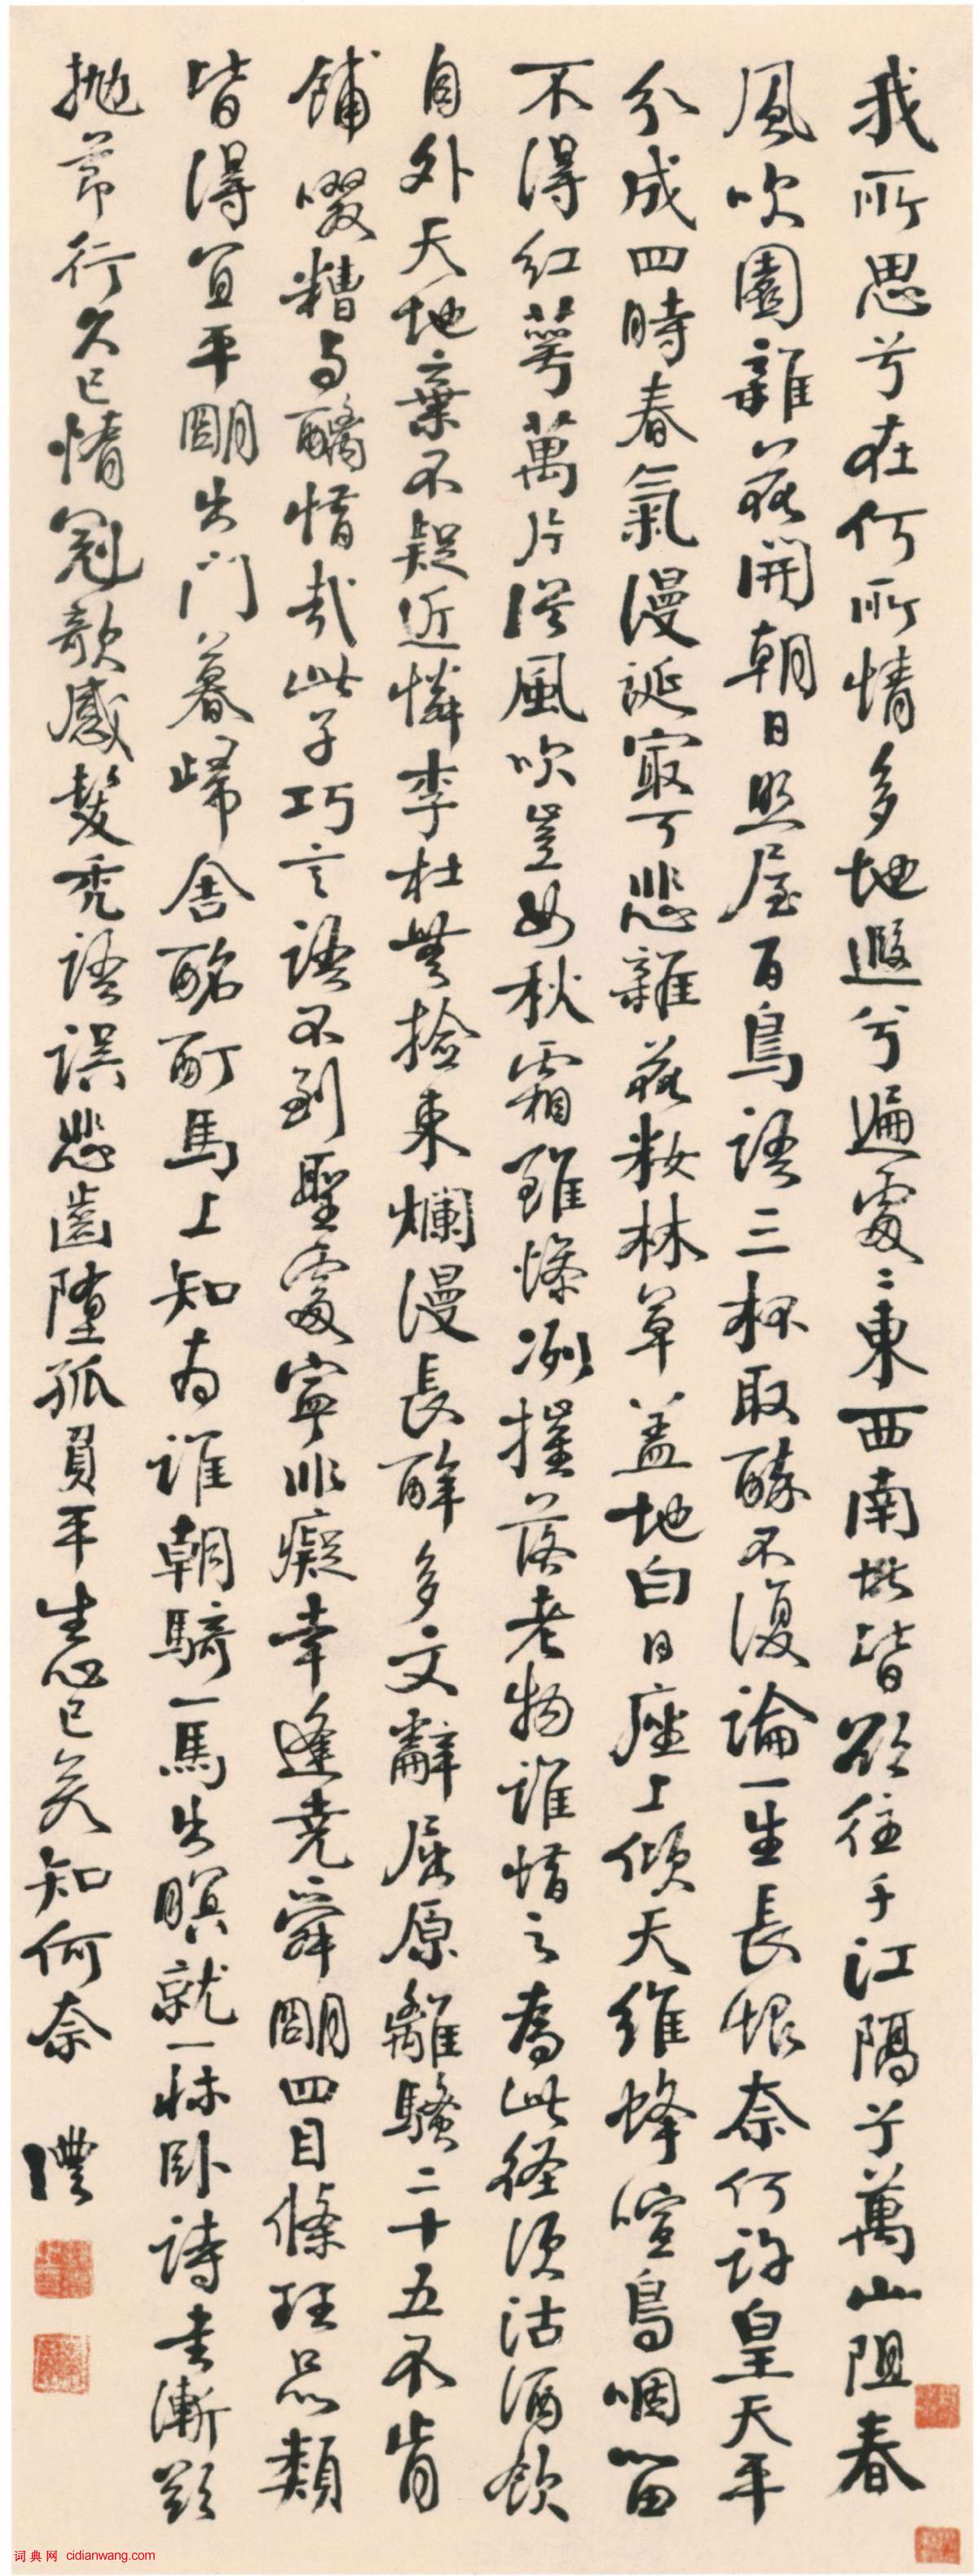 我所思兮在何所情多地遐兮遍處〻東西南北皆欲往千江隔兮萬山阻春
風吹園雜花開朝日照屋百鳥語三杯取醉不復論一生長恨奈何許皇天平
分成四時春氣漫誕最可悲雜花妝林草蓋地白日座上傾天維蜂喧鳥咽留
不得紅萼萬片從風吹豈如秋霜雖慘冽摧落老物誰惜之為此徑須沽酒飲
自外天地棄不疑近憐李杜無撿束爛漫長醉多文辭屈原離騷二十五不肯
餔啜糟與醨惜哉此子巧言語不到聖處寧非癡幸逢堯舜明四目條理品類
皆得宜平明出門暮歸舍酩酊馬上知為誰朝騎一馬出暝就一牀臥詩書漸欲
抛節行久已惰冠欹感髮禿語誤悲齒墮孤負平生心已矣知何奈 澧
词典网 cidianwang.com